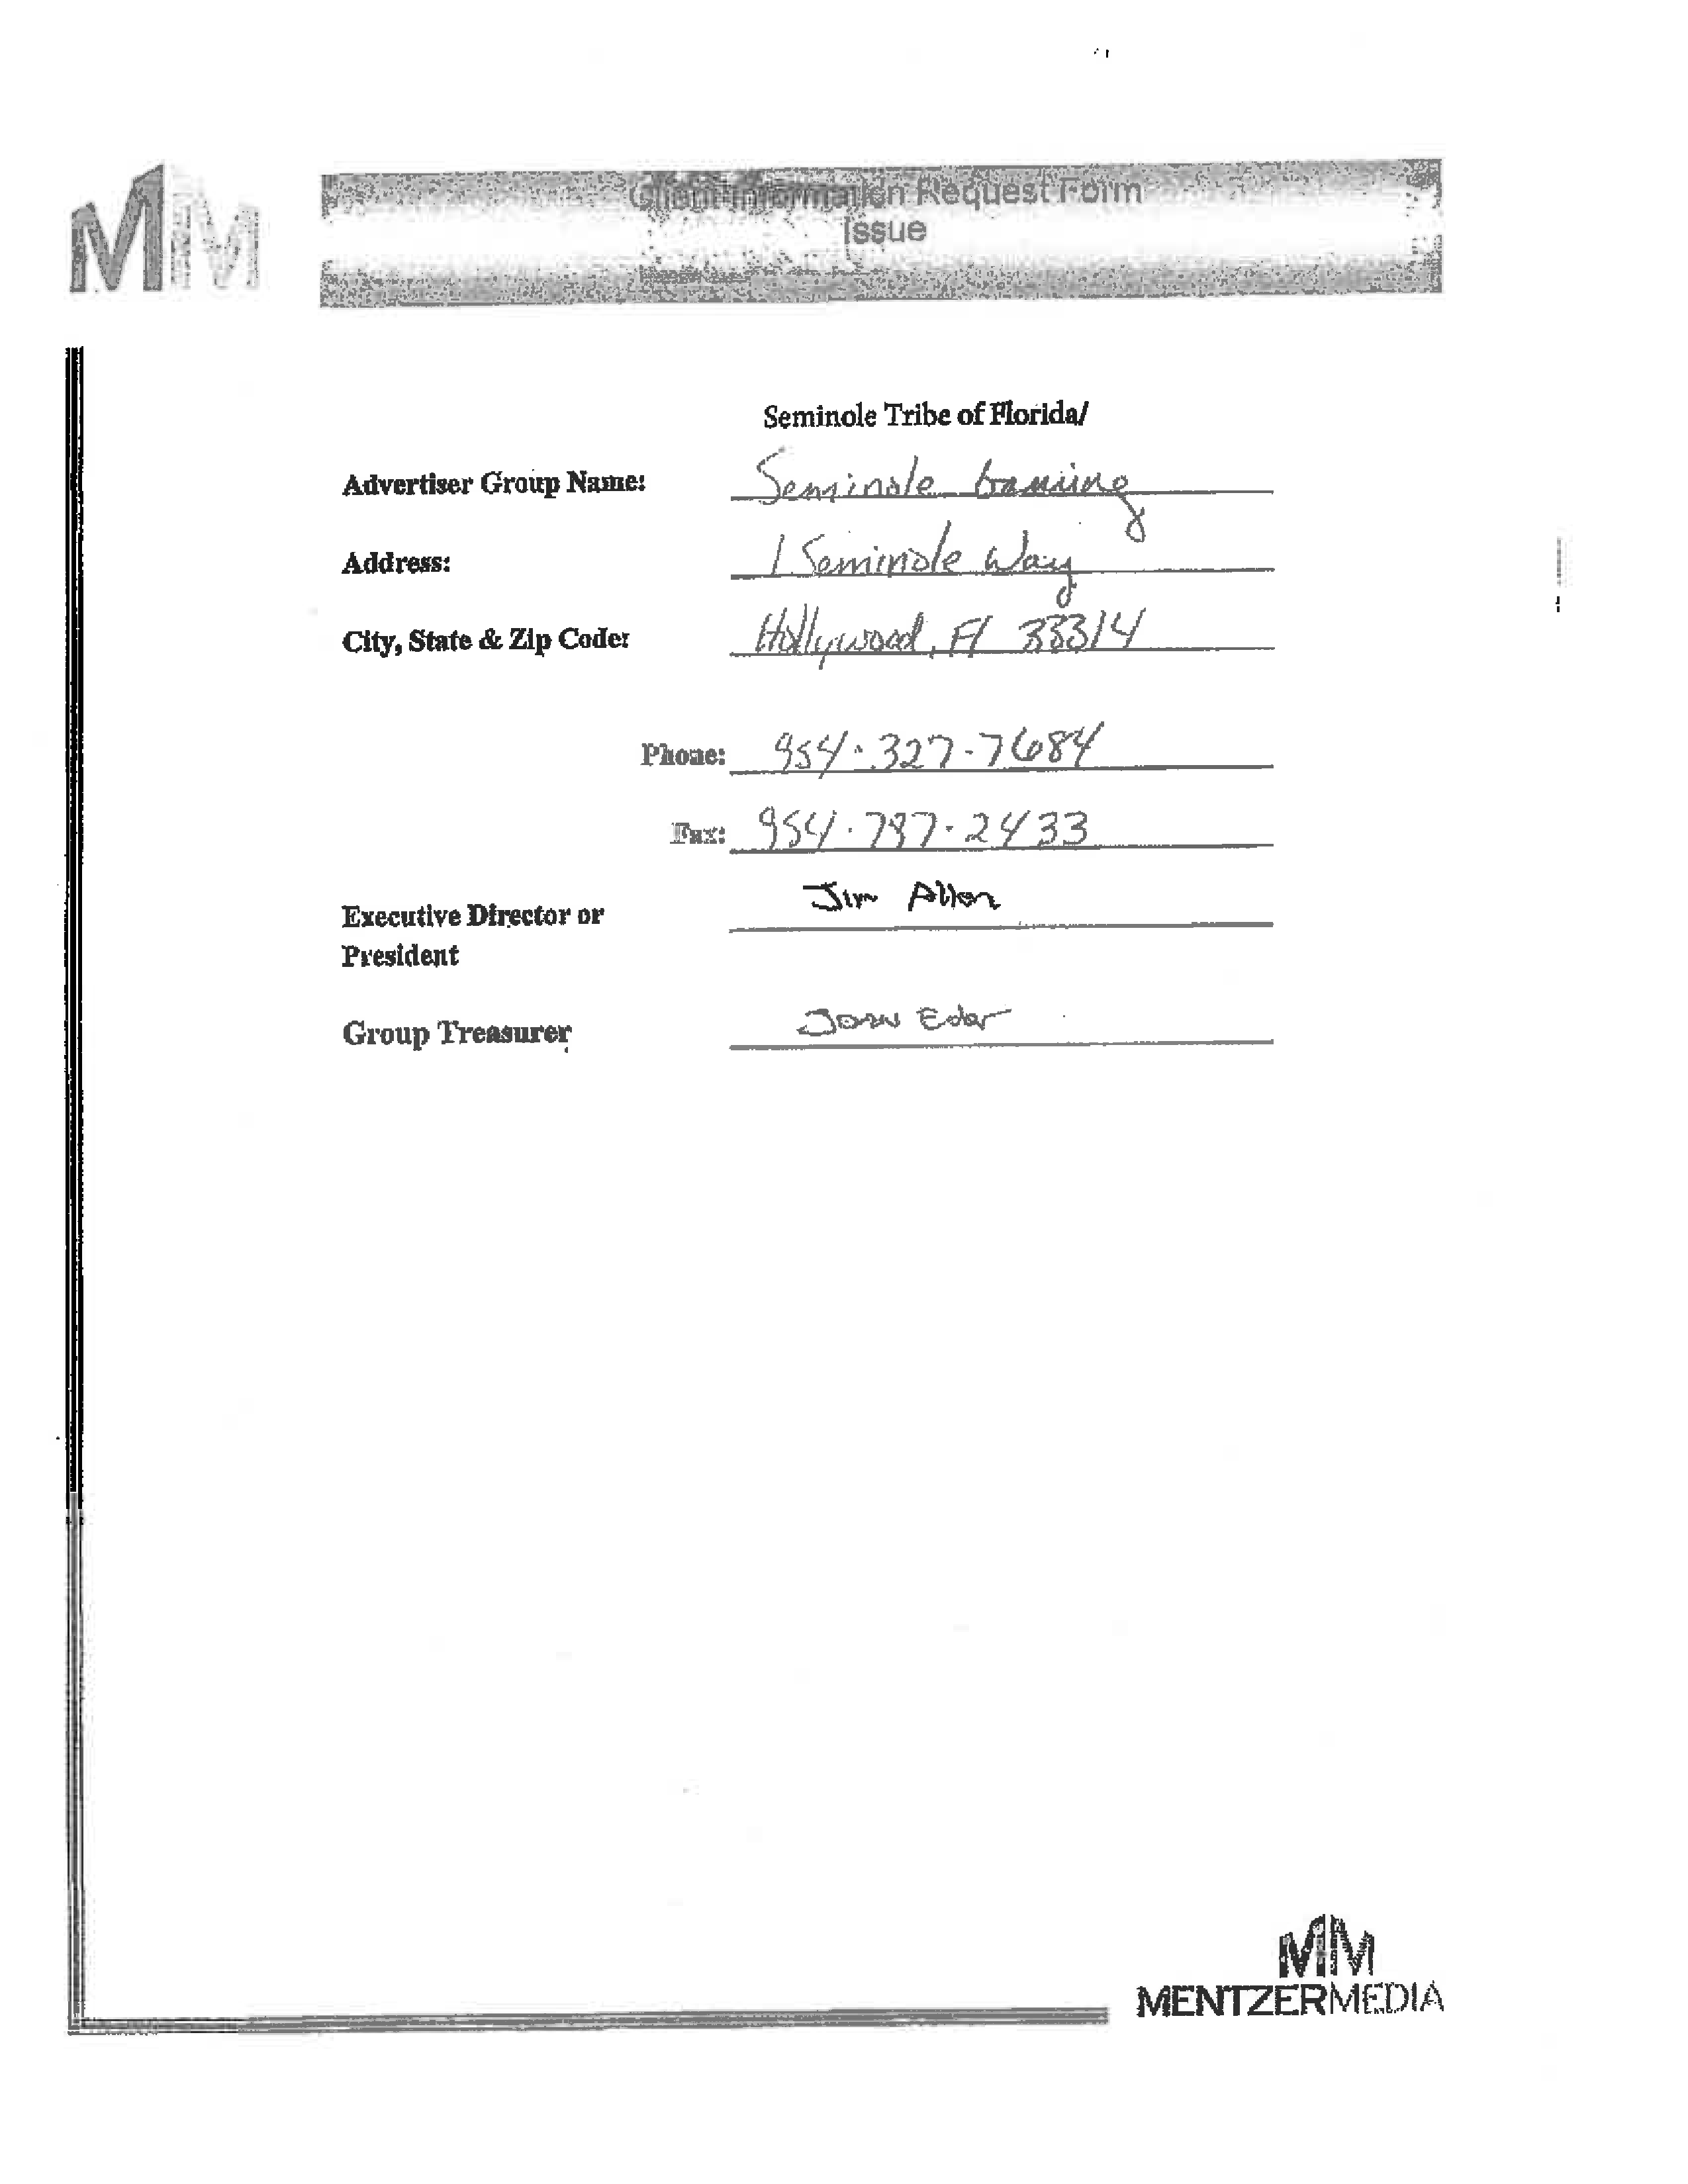 MM
Client Information Request Form
Issue
Seminole Tribe of Florida/
Advertiser Group Name: Seminole Gaming
Address: 1 Seminole Way
City, State & Zip Code: Hollywood, Fl 33314
Phone: 954.327-7684
Fax: 954.797.2433
Executive Director or Jim Allen
President
Group Treasurer John Eder
MM
MENTZERMEDIA